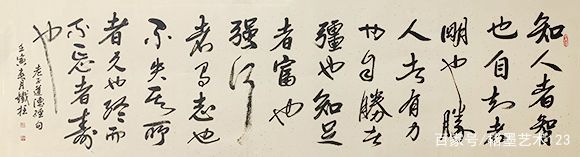 知人者智
也自知者
明也勝
人者有力
也自勝者
彊也知足
者富也
强行
者有志也
不失其所
者久也終而
不忘者壽
也
老子道德經句
壬寅春月鐵柱
百家号/墨艺术123